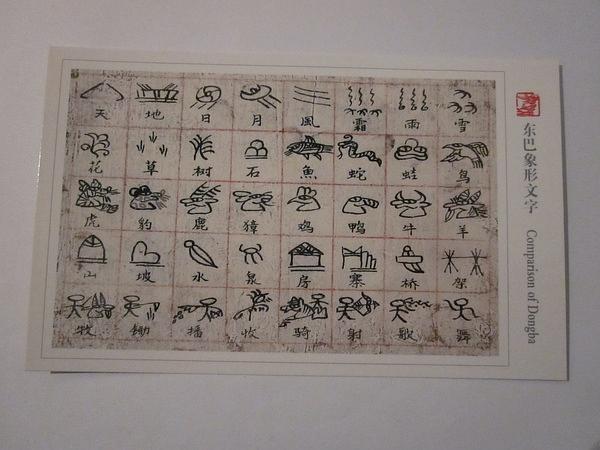 天 地 日 月 風 霜 雨 雪
花 草 树 石 魚 蛇 蛙 鸟
虎 豹 鹿 獐 鸡 鸭 牛 羊
山 坡 水 泉 房 寨 桥 架
牧 锄 播 收 骑 射 歌 舞
东巴象形文字 Comparison of Dongba